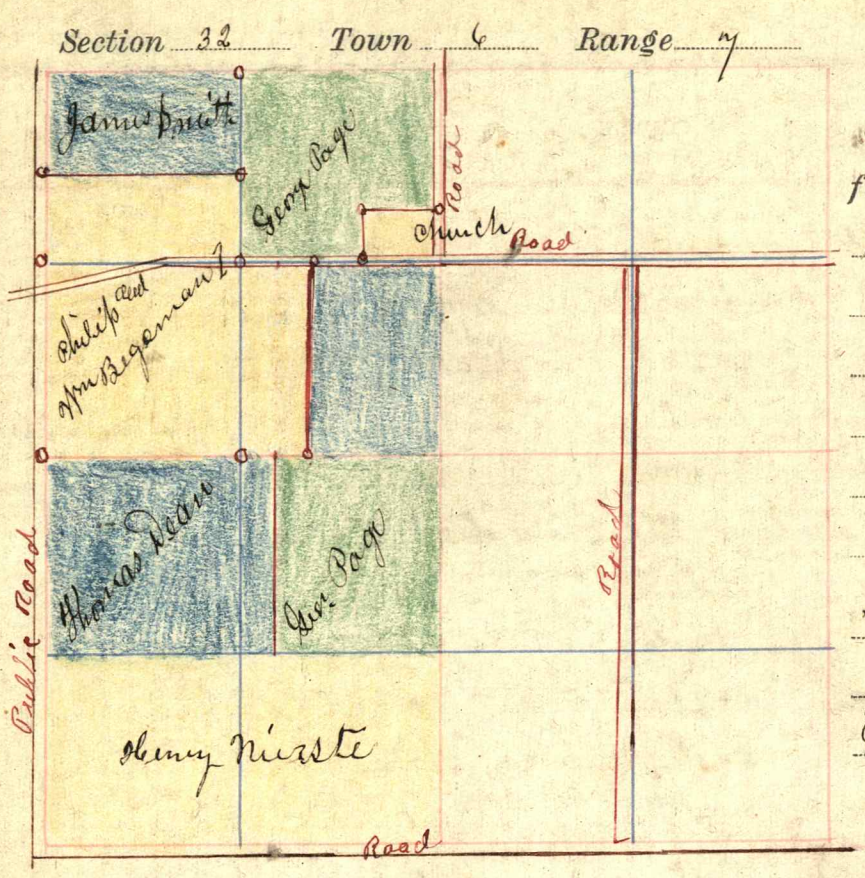 Section 32 Town 6 Range 7
James Smith
George Page
Road
Church
Road
Philip and
Wm Begeman
Thomas Dean
Geo. Page
Road
Public Road
Henry Nieraste
Road